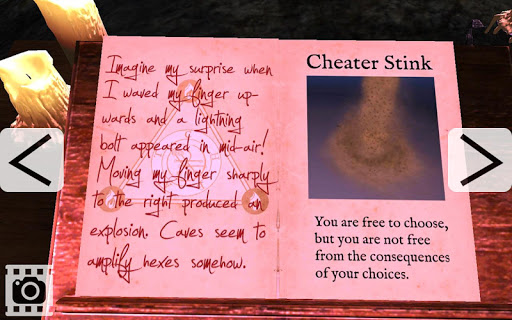 Imagine my surprise when
I waved my finger up-
wards and a lightning
bolt appeared in mid-air!
Moving my finger sharply
to the right produced an
explosion. Caves seem to
amplify hexes somehow.
Cheater Stink
You are free to choose,
but you are not free
from the consequences
of your choices.